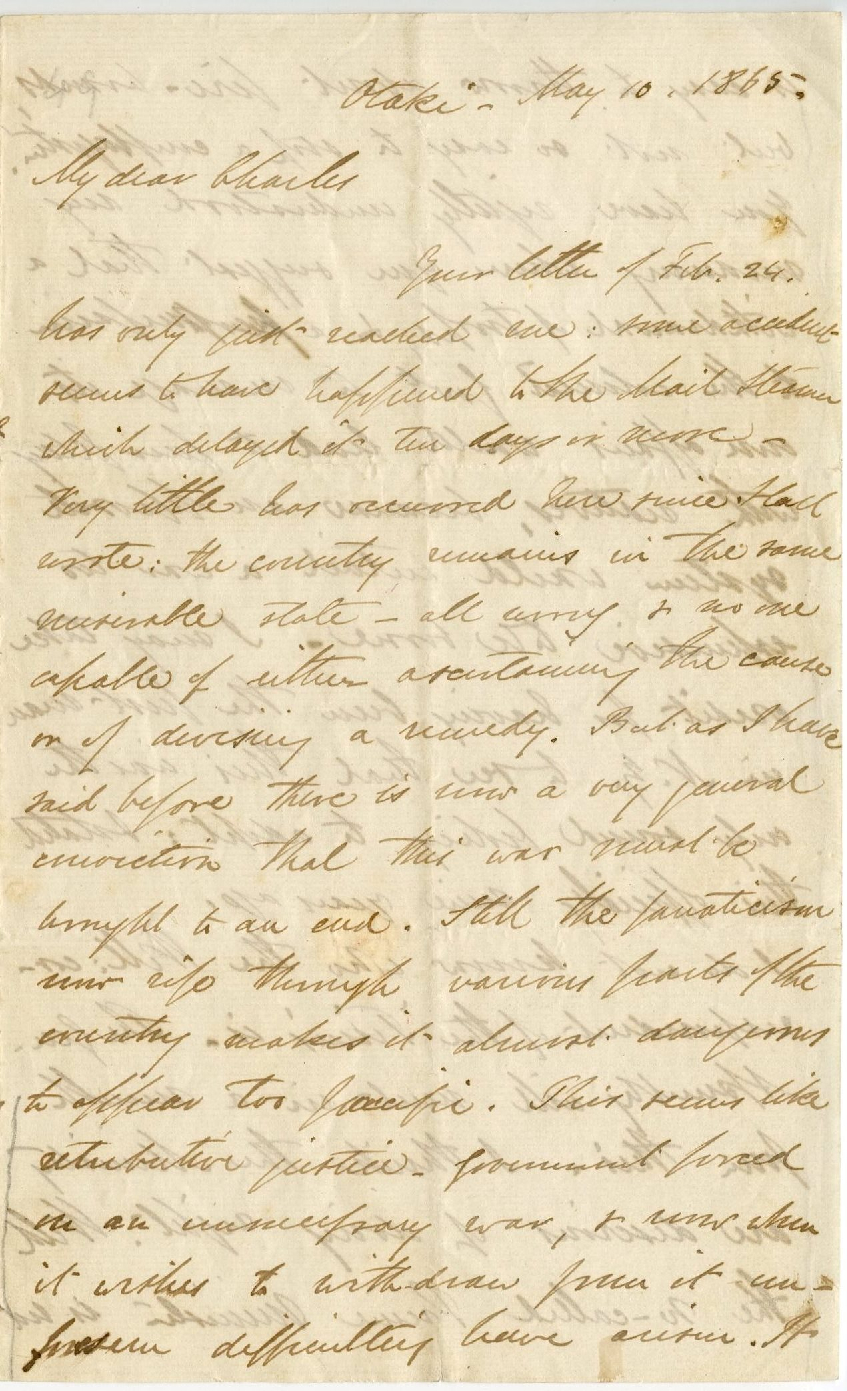 Otaki - May 10. 1865.
My dear Charles
Your letter of Feb. 24.
has only just reached me: some accident
seems to have happened to the Mail Steamer
which delayed it ten days or more -
Very little has occurred here since I last
wrote: the country remains in the same
miserable state - all wrong & no one
capable of either ascertaining the cause
or of devising a remedy. But as I have
said before there is now a very general
conviction that this war must be
brought to an end. Still the fanaticism
now rife through various parts of the
country makes it almost dangerous
to appear too pacific. This seems like
retributive justice - Government forced
on an unnecessary war, & now when
it wishes to withdraw from it un=
foreseen difficulties have arisen. It